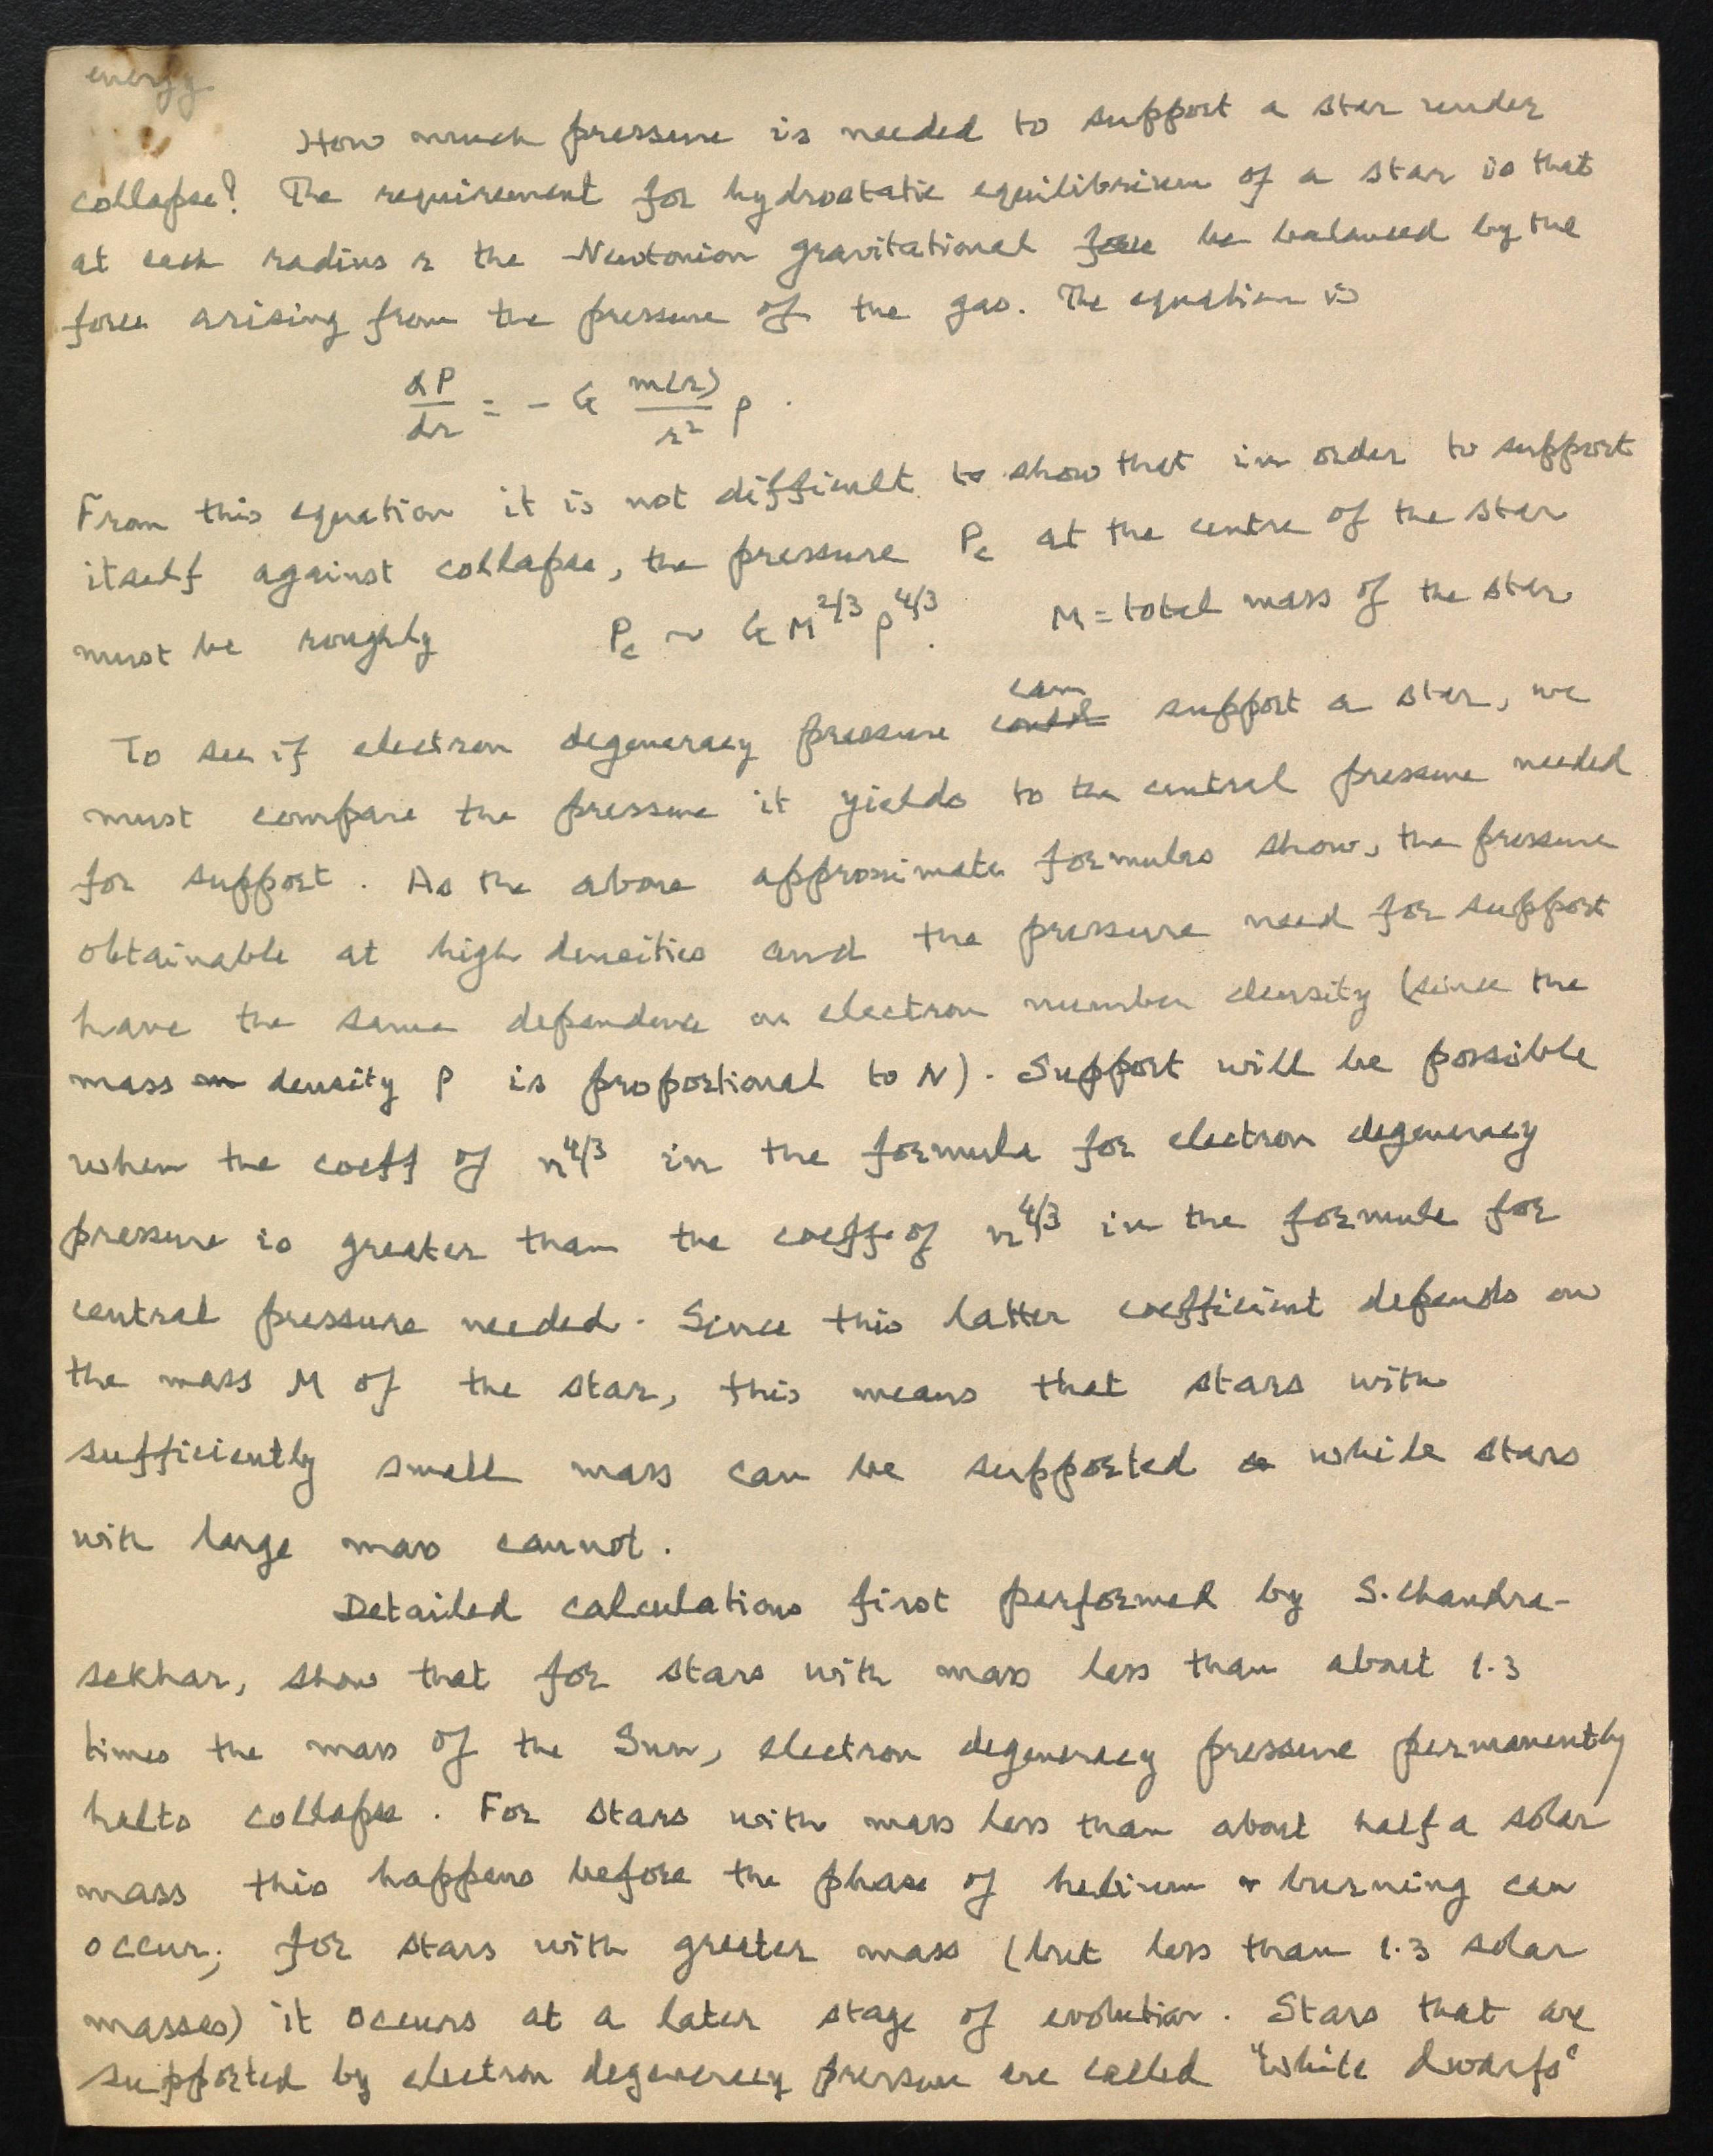 energy.
How much pressure is needed to support a star under
collapse? The requirement for hydrostatic equilibrium of a star is that
at each radius r the Newtonion gravitational force be balanced by the
force arising from the pressure of the gas. The equation is
dP/dr = - G m(r)/r² ρ .
From this equation it is not difficult to show that in order to support
itself against collapse, the pressure Pc at the centre of the star
must be roughly Pc ~ G M^2/3 ρ^4/3 . M = total mass of the star
can
To see if electron degeneracy pressure could support a star, we
must compare the pressure it yields to the central pressure needed
for support. As the above approximate formulas show, the pressure
obtainable at high densities and the pressure need for support
have the same dependence on electron number density (since the
mass density ρ is proportional to N). Support will be possible
when the coeff of n^4/3 in the formula for electron degeneracy
pressure is greater than the coeff. of n^4/3 in the formula for
central pressure needed. Since this latter coefficient depends on
the mass M of the star, this means that stars with
sufficiently small mass can be supported while stars
with large mass cannot.
Detailed calculations first performed by S. Chandra-
sekhar, show that for stars with mass less than about 1.3
times the mass of the Sun, electron degeneracy pressure permanently
halts collapse. For stars with mass less than about half a solar
mass this happens before the phase of helium burning can
occur; for stars with greater mass (but less than 1.3 solar
masses) it occurs at a later stage of evolution. Stars that are
supported by electron degeneracy pressure are called "White dwarfs"